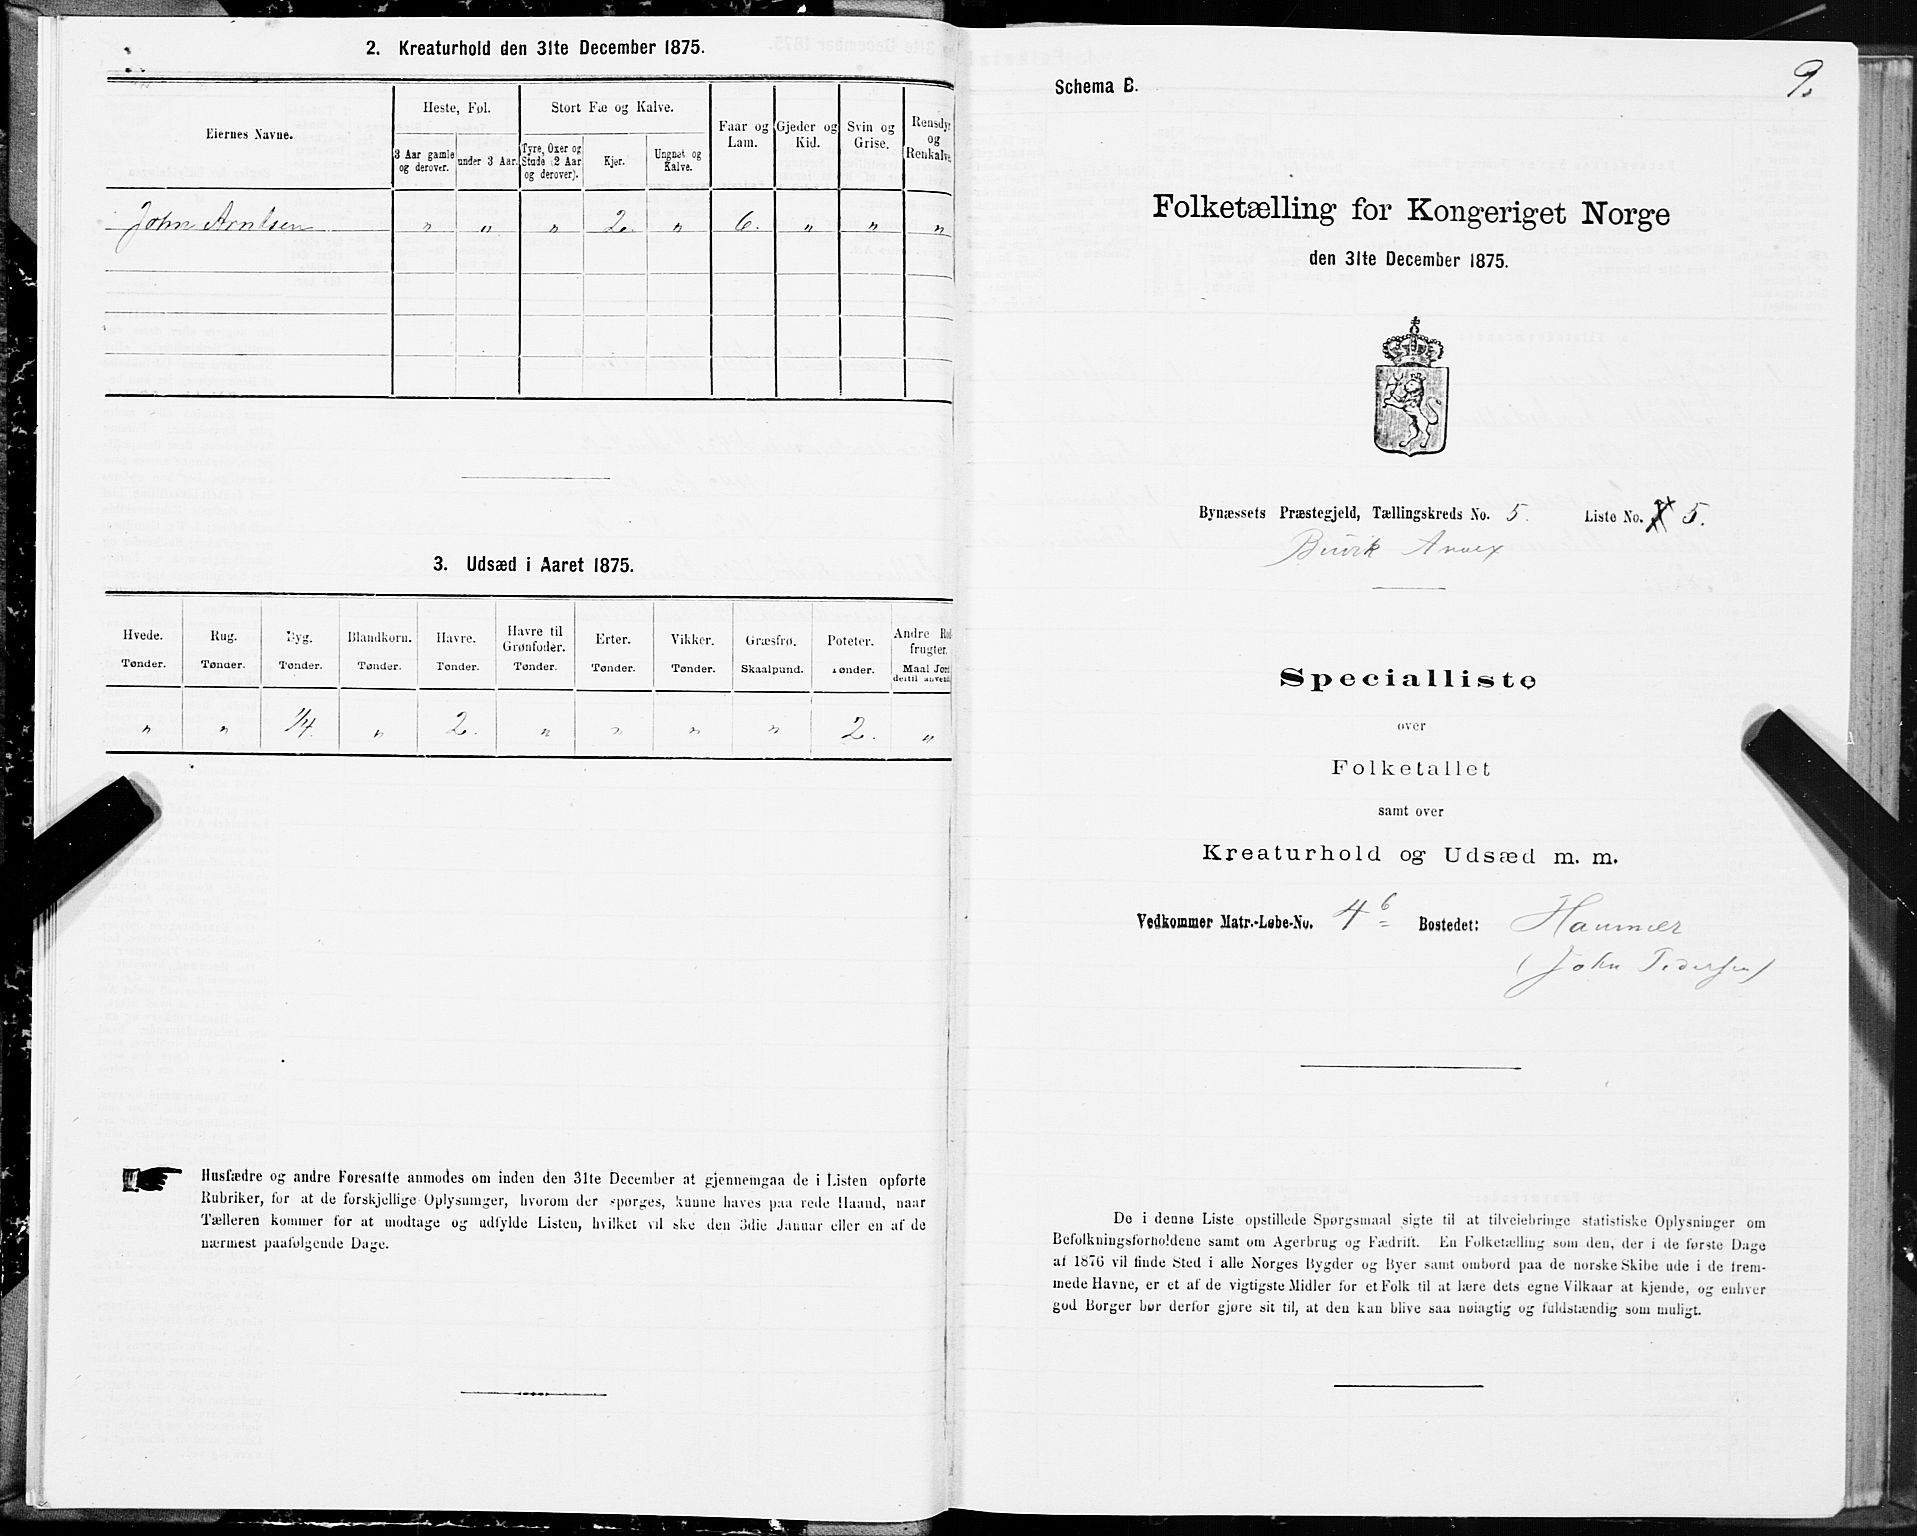 2. Kreaturhold den 31te December 1875.
Eiernes Navne.
Heste, Føl.
Stort Fæ og Kalve.
Faar og Lam.
Gjeder og Kid.
Svin og Grise.
Rensdyr og Renkalve.
3 Aar gamle og derover.
under 3 Aar.
Tyre, Oxer og Stude (2 Aar og derover).
Kjør.
Ungnøt og Kalve.
John Arntsen " " " 2. " 6. " " "
3. Udsæd i Aaret 1875.
Hvede. Rug. Byg. Blandkorn. Havre. Havre til Grønfoder. Erter. Vikker. Græsfrø. Poteter. Andre Rod-
frugter.
Tønder. Tønder. Tønder. Tønder. Tønder. Tønder. Tønder. Tønder. Skaalpund. Tønder. Maal Jord
dertil anvendt
" " 1/4. " 2. " " " " 2. "
Husfædre og andre Foresatte anmodes om inden den 31te December at gjennemgaa de i Listen opførte
Rubriker, for at de forskjellige Oplysninger, hvorom der spørges, kunne haves paa rede Haand, naar
Tælleren kommer for at modtage og udfylde Listen, hvilket vil ske den 3die Januar eller en af de
nærmest paafølgende Dage.
9.
Schema B.
Folketælling for Kongeriget Norge
den 31te December 1875.
Bynæssets Præstegjeld, Tællingskreds No. 5. Liste No. 5.
Buvik Anex
Specialliste
over
Folketallet
samt over
Kreaturhold og Udsæd m. m.
Vedkommer Matr.-Løbe-No. 4 b Bostedet: Hammer
(John Pedersen)
De i denne Liste opstillede Spørgsmaal sigte til at tilveiebringe statistiske Oplysninger om
Befolkningsforholdene samt om Agerbrug og Fædrift. En Folketælling som den, der i de første Dage
af 1876 vil finde Sted i alle Norges Bygder og Byer samt ombord paa de norske Skibe ude i de frem-
mede Havne, er et af de vigtigste Midler for et Folk til at lære dets egne Vilkaar at kjende, og enhver
god Borger bør derfor gjøre sit til, at den kan blive saa nøiagtig og fuldstændig som muligt.